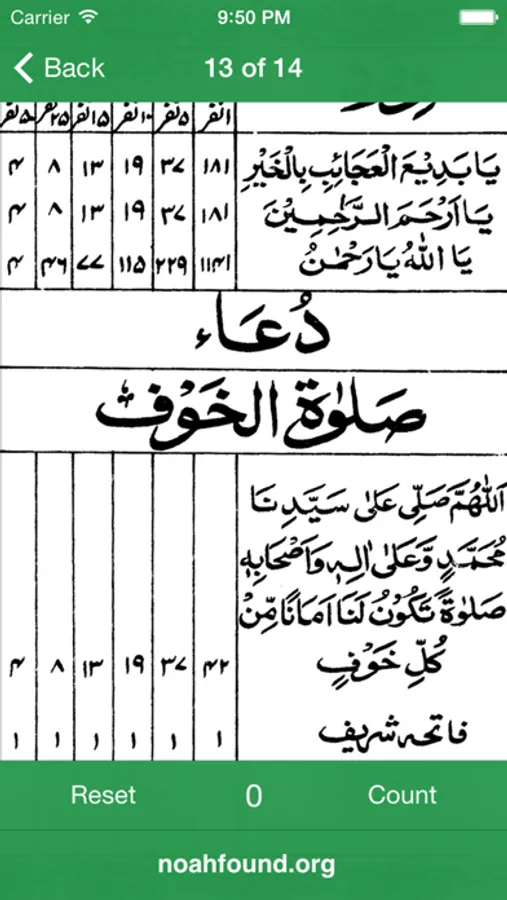 Carrier 9:50 PM
Back 13 of 14
۱نفر ۵نفر ۱۰نفر ۱۵نفر ۲۵نفر
یَا بَدِیْعَ الْعَجَائِبِ بِالْخَیْرِ ۱۸۱ ۳۷ ۱۹ ۱۳ ۸ ۴
یَا اَرْحَمَ الرَّاحِمِیْنَ ۱۸۱ ۳۷ ۱۹ ۱۳ ۸ ۴
یَا اَللّٰهُ یَا رَحْمٰنُ ۱۱۴۱ ۲۲۹ ۱۱۵ ۷۷ ۴۶ ۴
دُعَاء
صَلٰوةُ الْخَوْف
اَللّٰهُمَّ صَلِّی عَلٰی سَیِّدِنَا
مُحَمَّدٍ وَّعَلٰی اٰلِهٖ وَاَصْحَابِهٖ
صَلٰوةً تَكُوْنُ لَنَا اَمَانًا مِّنْ
كُلِّ خَوْفٍ ۴۲ ۳۷ ۱۹ ۱۳ ۸ ۴
فاتحہ شریف ۱ ۱ ۱ ۱ ۱ ۱
Reset 0 Count
noahfound.org